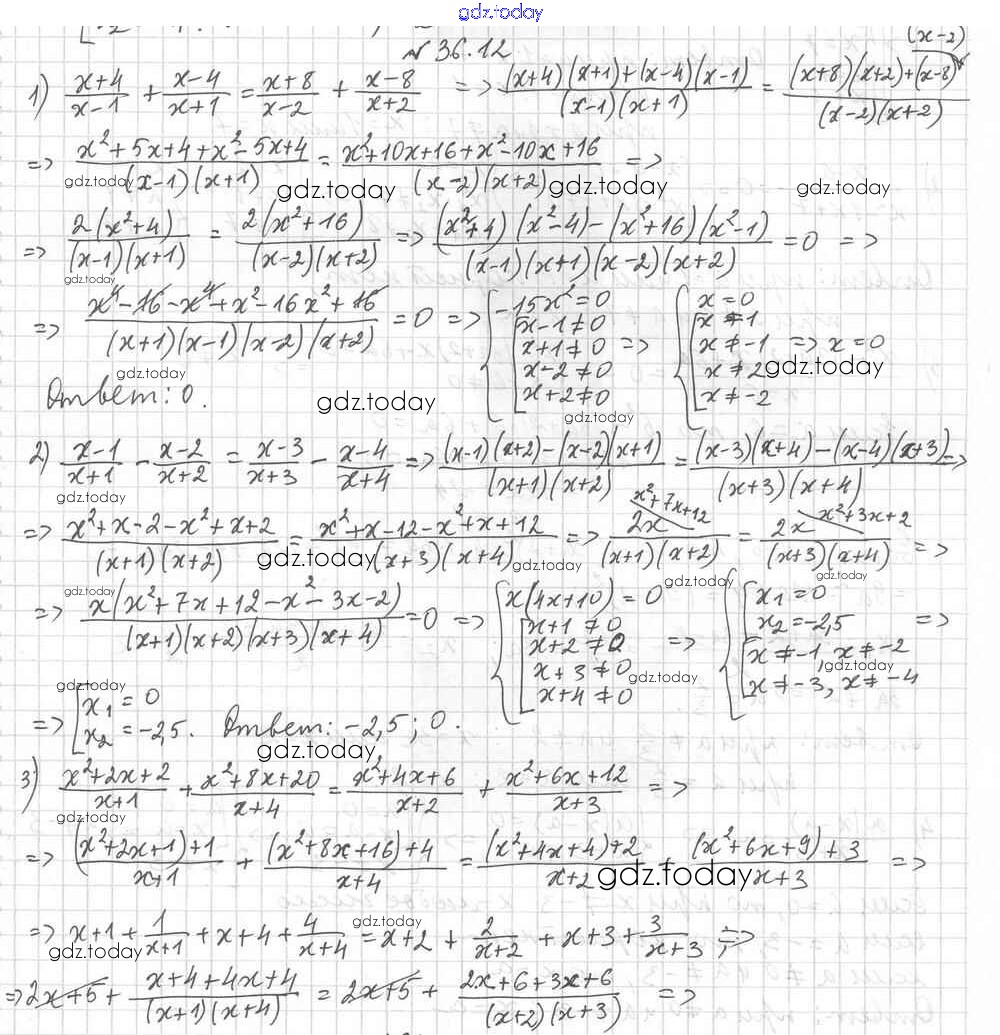 gdz.today
(x-2)
№36.12
1) \frac{x+4}{x-1} + \frac{x-4}{x+1} = \frac{x+8}{x-2} + \frac{x-8}{x+2} => \frac{(x+4)(x+1)+(x-4)(x-1)}{(x-1)(x+1)} = \frac{(x+8)(x+2)+(x-8)}{(x-2)(x+2)}
=> \frac{x^2+5x+4+x^2-5x+4}{(x-1)(x+1)} = \frac{x^2+10x+16+x^2-10x+16}{(x-2)(x+2)} =>
gdz.today gdz.today gdz.today gdz.today
=> \frac{2(x^2+4)}{(x-1)(x+1)} = \frac{2(x^2+16)}{(x-2)(x+2)} => \frac{(x^2+4)(x^2-4)-(x^2+16)(x^2-1)}{(x-1)(x+1)(x-2)(x+2)} = 0 =>
gdz.today
=> \frac{x^4-16-x^4+x^2-16x^2+16}{(x+1)(x-1)(x-2)(x+2)} = 0 => { -15x^2=0 [ x-1≠0 x+1≠0 x-2≠0 x+2≠0 => { x=0 [ x≠1 x≠-1 x≠2 x≠-2 => x=0
gdz.today gdz.today
Ответ: 0. gdz.today gdz.today
2) \frac{x-1}{x+1} - \frac{x-2}{x+2} = \frac{x-3}{x+3} - \frac{x-4}{x+4} => \frac{(x-1)(x+2)-(x-2)(x+1)}{(x+1)(x+2)} = \frac{(x-3)(x+4)-(x-4)(x+3)}{(x+3)(x+4)} =>
gdz.today
x^2+7x+12 x^2+3x+2
=> \frac{x^2+x-2-x^2+x+2}{(x+1)(x+2)} = \frac{x^2+x-12-x^2+x+12}{(x+3)(x+4)} => \frac{2x}{(x+1)(x+2)} = \frac{2x}{(x+3)(x+4)} =>
gdz.today gdz.today gdz.today gdz.today
=> \frac{x(x^2+7x+12-x^2-3x-2)}{(x+1)(x+2)(x+3)(x+4)} = 0 => { x(4x+10)=0 [ x+1≠0 x+2≠0 x+3≠0 x+4≠0 => { [ x_1=0 x_2=-2,5 [ x≠-1, x≠-2 x≠-3, x≠-4 =>
gdz.today gdz.today gdz.today
=> [ x_1=0 x_2=-2,5. Ответ: -2,5; 0.
gdz.today
3) \frac{x^2+2x+2}{x+1} + \frac{x^2+8x+20}{x+4} = \frac{x^2+4x+6}{x+2} + \frac{x^2+6x+12}{x+3} =>
gdz.today
=> \frac{(x^2+2x+1)+1}{x+1} + \frac{(x^2+8x+16)+4}{x+4} = \frac{(x^2+4x+4)+2}{x+2} \frac{(x^2+6x+9)+3}{x+3} =>
gdz.today
=> x+1+\frac{1}{x+1} + x+4+\frac{4}{x+4} = x+2+\frac{2}{x+2} + x+3+\frac{3}{x+3} =>
gdz.today gdz.today
=> 2x+5 + \frac{x+4+4x+4}{(x+1)(x+4)} = 2x+5 + \frac{2x+6+3x+6}{(x+2)(x+3)} =>